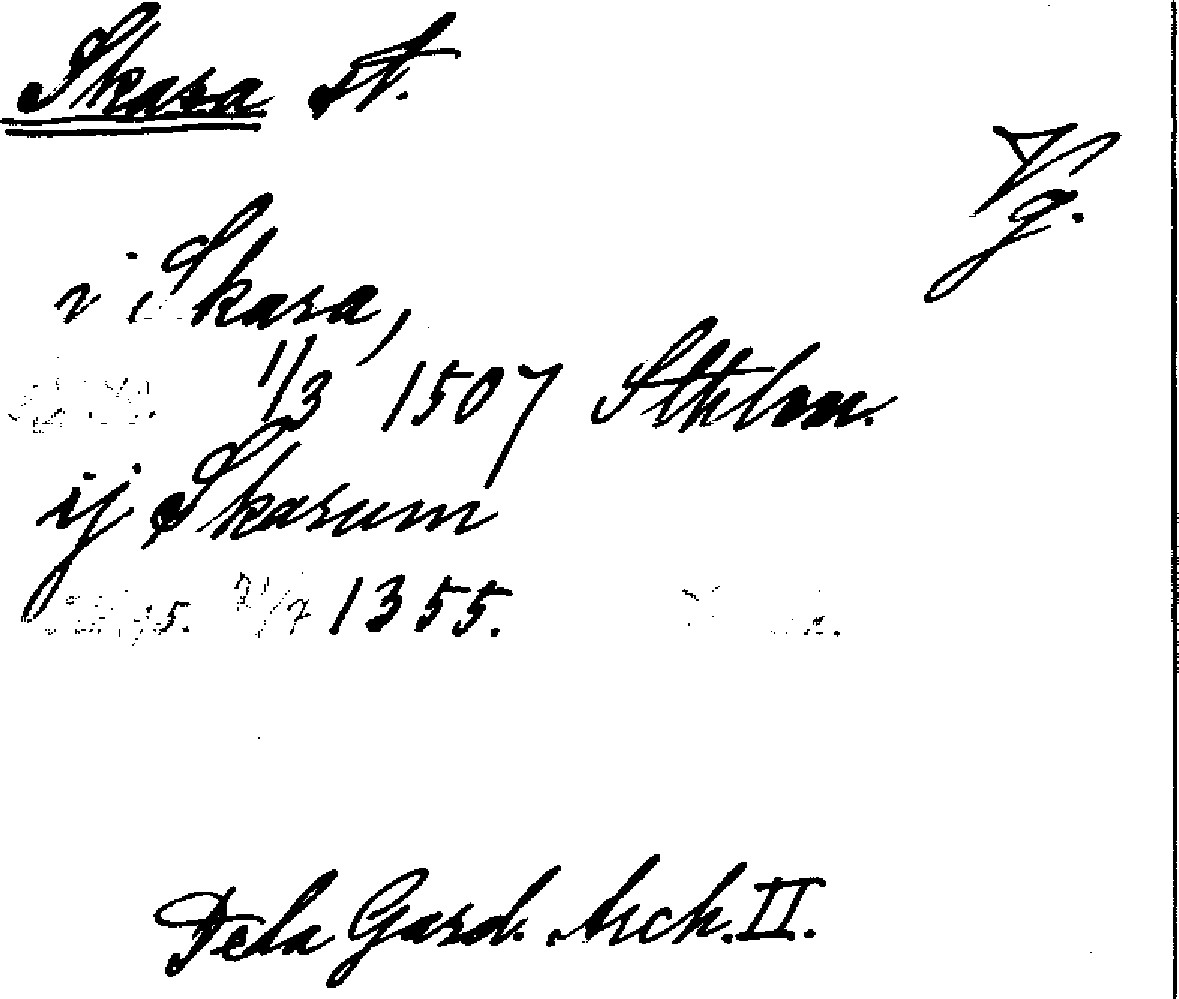 Skara st.
Vg.
i Skara,
1/3 1507 Sthlm.
ij Skarum
21/7 1355.
De la Gard. Arch. II.